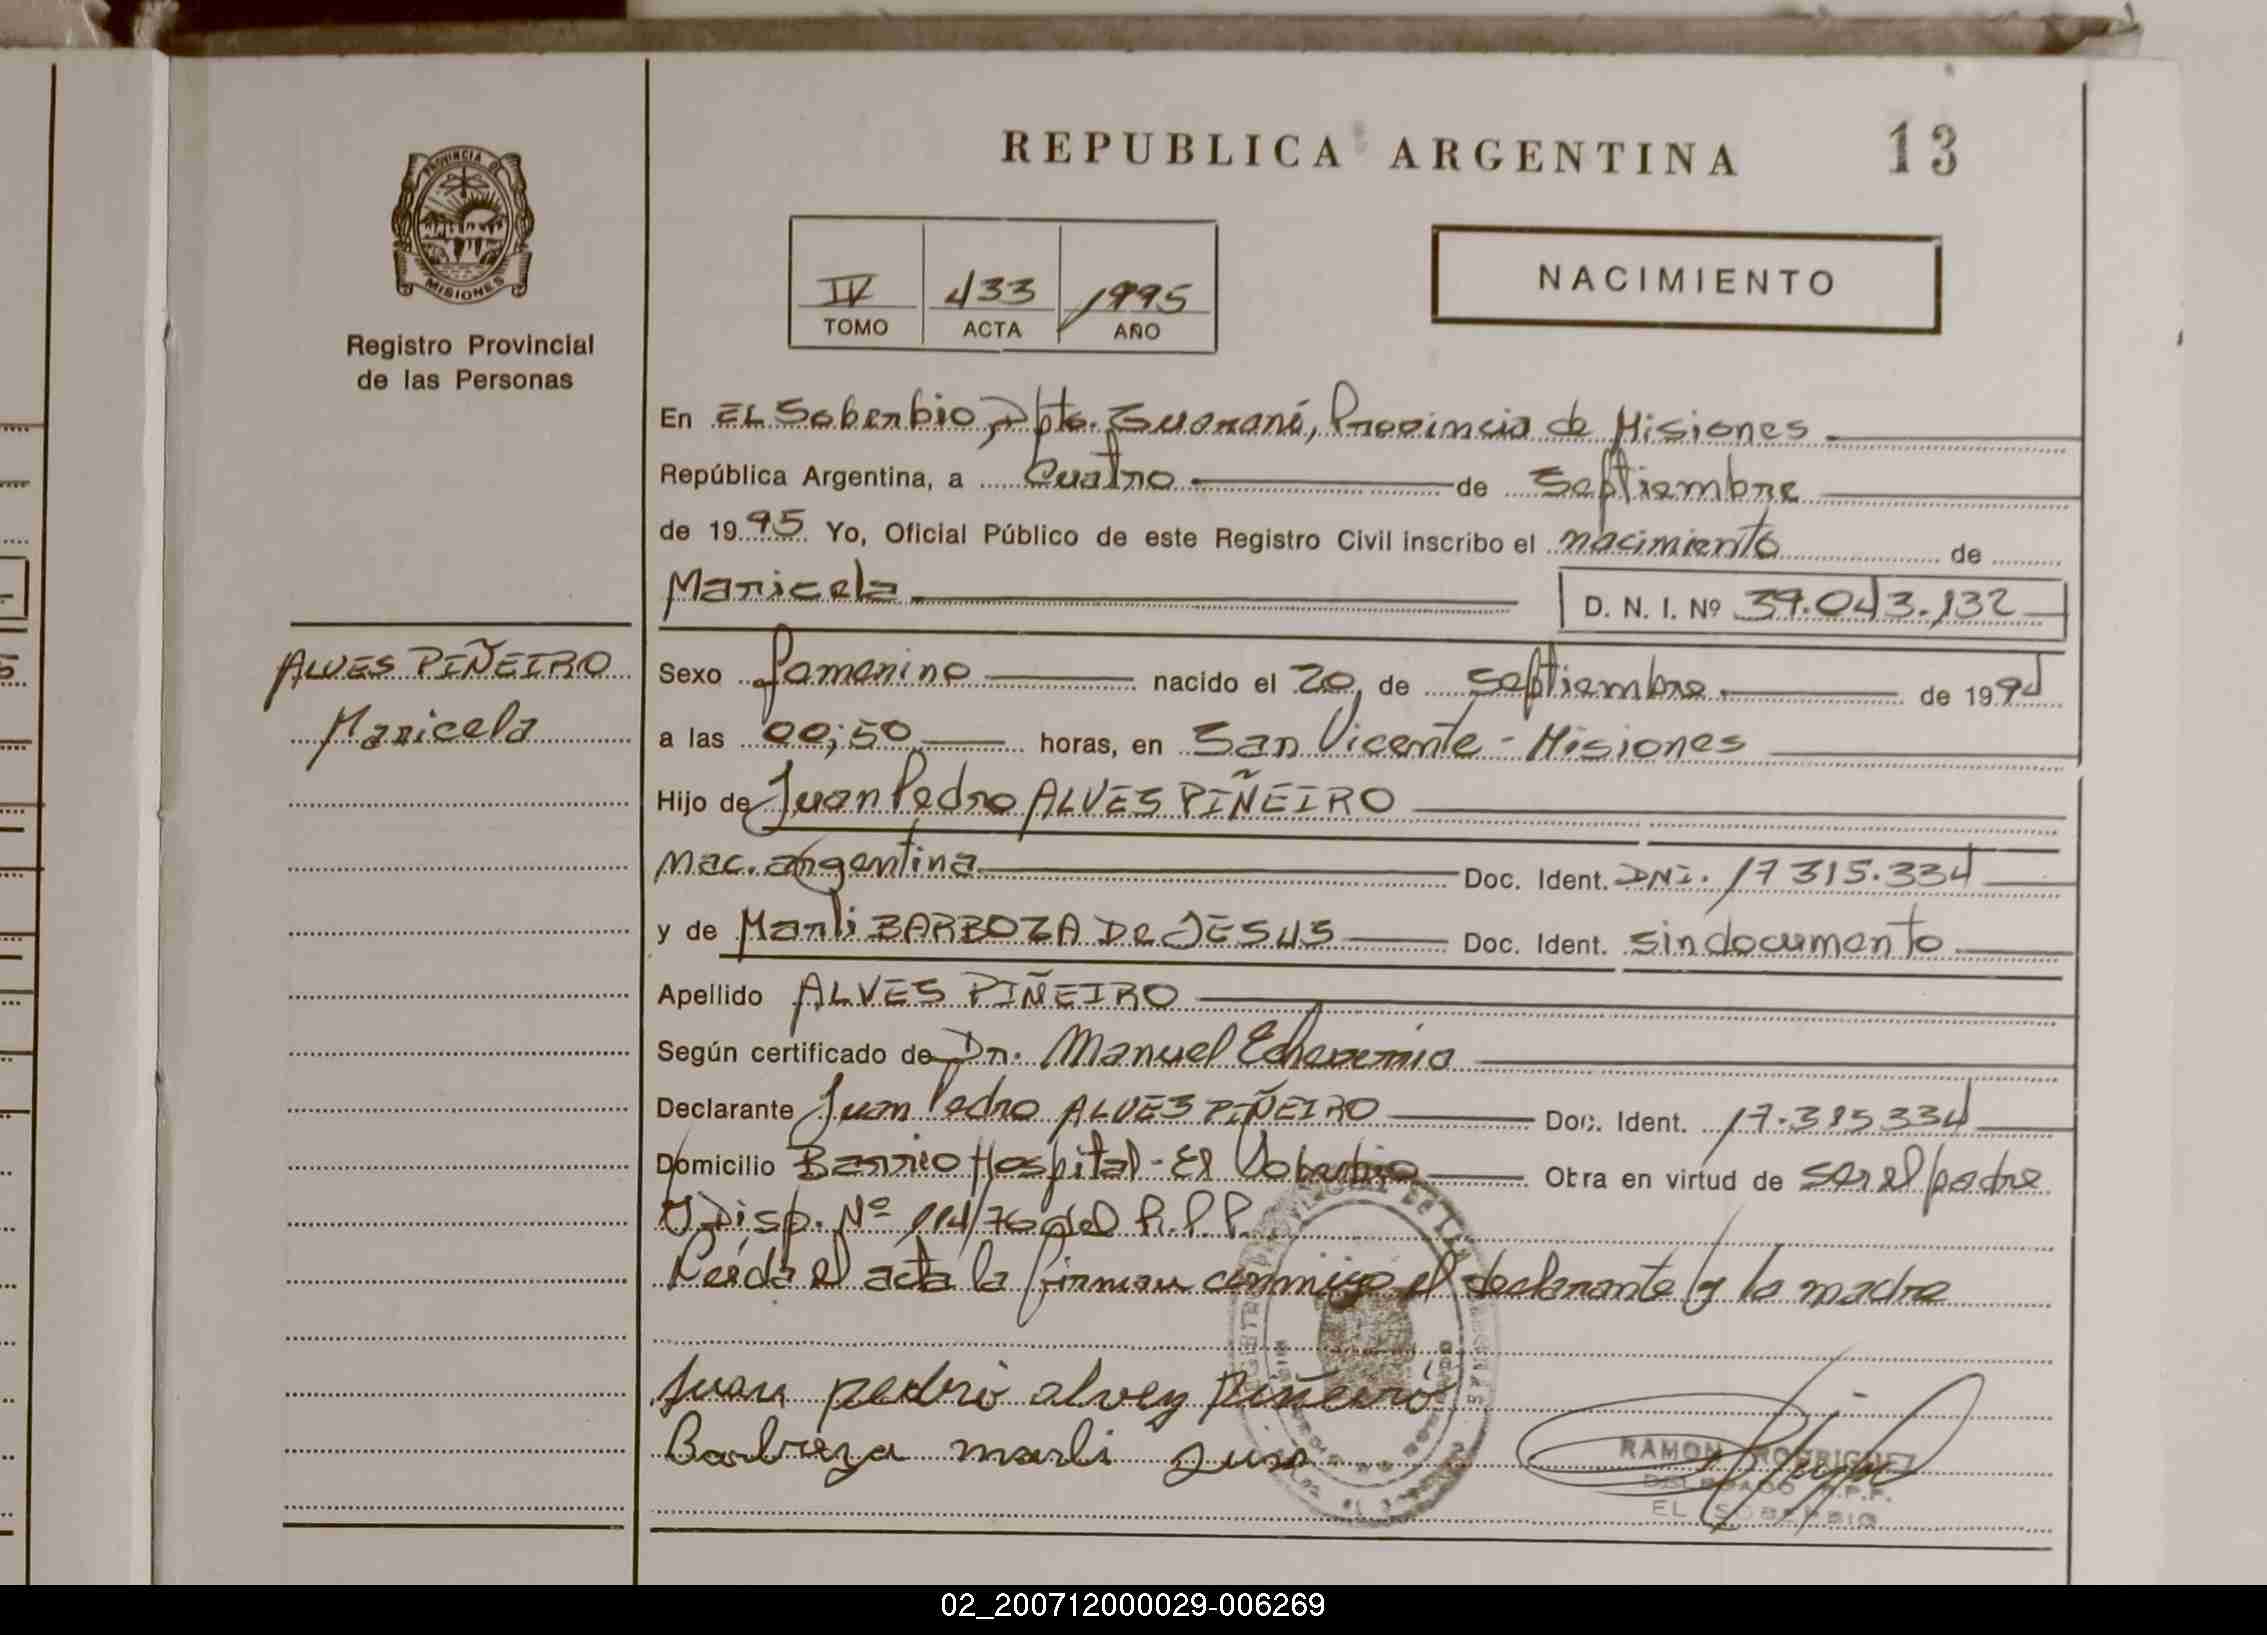 REPUBLICA ARGENTINA 13
PROVINCIA DE
MISIONES
Registro Provincial
de las Personas
IV 433 1995
TOMO ACTA AÑO
NACIMIENTO
En EL Soberbio, Dpto. Guaraní, Provincia de Misiones
República Argentina, a Cuatro de Septiembre
de 1995 Yo, Oficial Público de este Registro Civil inscribo el nacimiento de
Maricela D. N. I. Nº 39.043.132
ALVES PIÑEIRO
Maricela
Sexo femenino nacido el 20, de septiembre de 1994
a las 00;50 horas, en San Vicente - Misiones
Hijo de Juan Pedro ALVES PIÑEIRO
nac. argentina Doc. Ident. DNI. 17 315.334
y de Marli BARBOZA De JESUS Doc. Ident. sin documento
Apellido ALVES PIÑEIRO
Según certificado de Dr. Manuel Echeverria
Declarante Juan Pedro ALVES PIÑEIRO Doc. Ident. 17.315334
Domicilio Barrio Hospital - El Soberbio Obra en virtud de ser el padre
y Disp. Nº 114/76 del R.P.P.
Leída el acta la firman conmigo el declarante y la madre
Juan pedro alvez Piñeiro
Barboza marli
RAMON RODRIGUEZ
DELEGADO R.P.P.
EL SOBERBIO
02_200712000029-006269